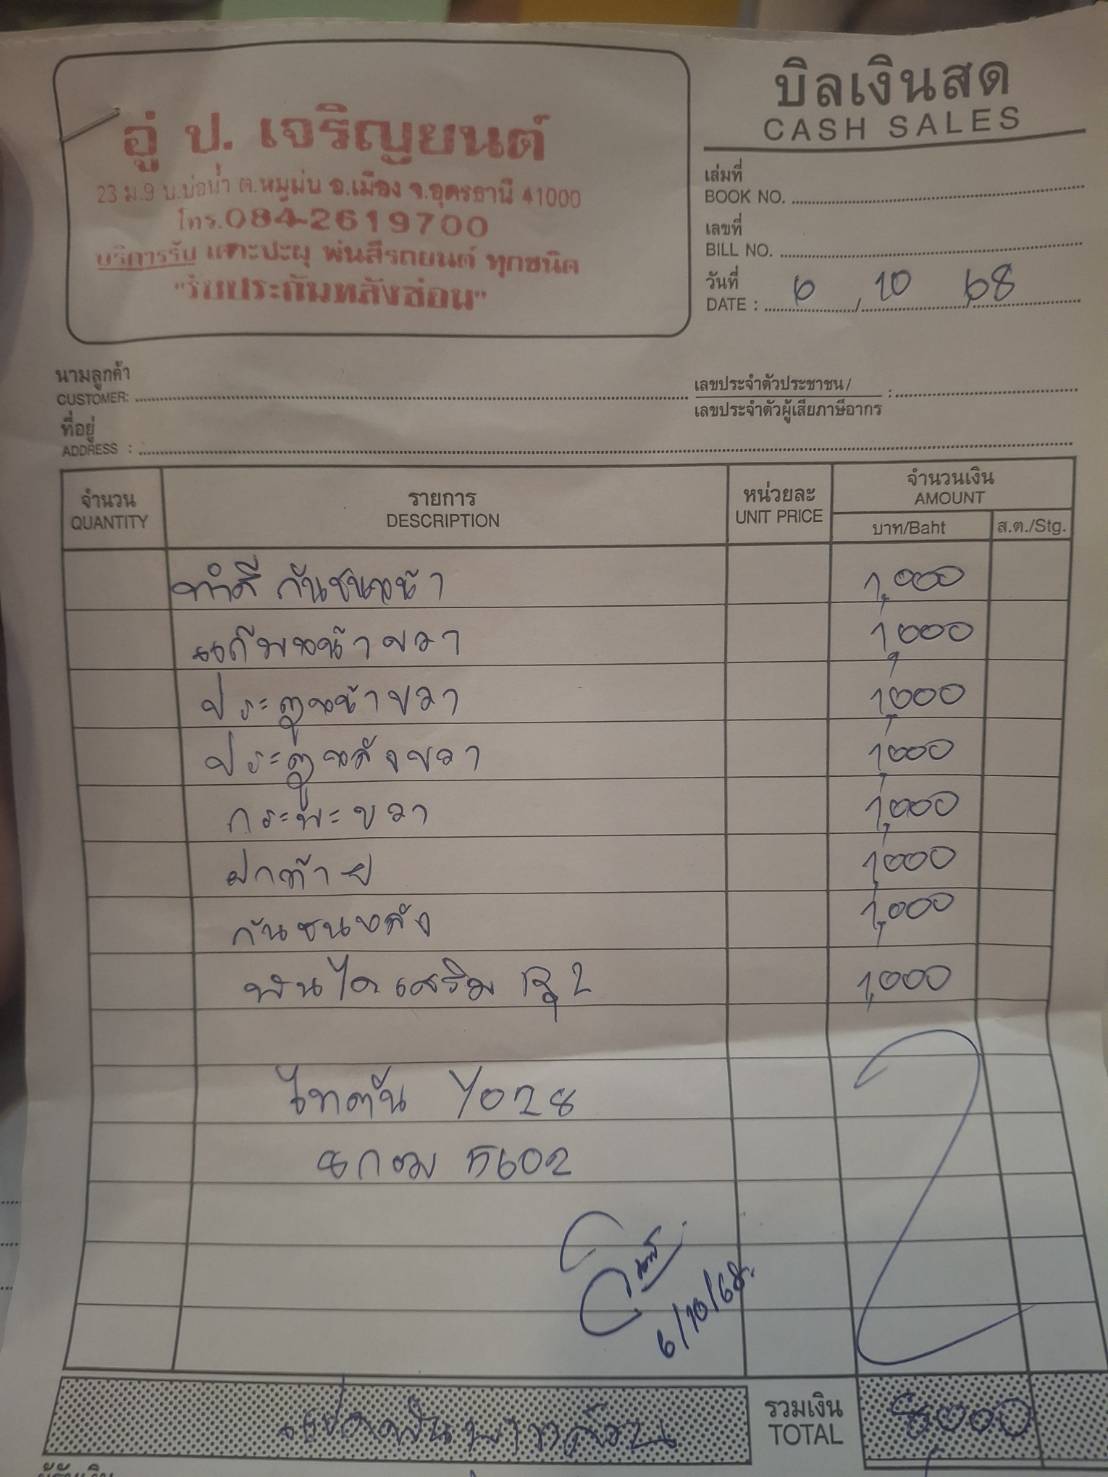 บิลเงินสด
CASH SALES
อู่ ป. เจริญยนต์
23 ม.9 บ.บ่อน้ำ ต.หมูม่น อ.เมือง จ.อุดรธานี 41000
โทร.084-2619700
บริการรับ เคาะปะผุ พ่นสีรถยนต์ ทุกชนิด
"รับประกันหลังซ่อม"
เล่มที่
BOOK NO.
เลขที่
BILL NO.
วันที่
DATE : 6 / 10 / 68
นามลูกค้า
CUSTOMER:
เลขประจำตัวประชาชน/ :
เลขประจำตัวผู้เสียภาษีอากร
ที่อยู่
ADDRESS :
จำนวน รายการ หน่วยละ จำนวนเงิน
QUANTITY DESCRIPTION UNIT PRICE AMOUNT
บาท/Baht ส.ต./Stg.
ทำสี กันชนหน้า 1,000
แก้มหน้าขวา 1,000
ประตูหน้าขวา 1,000
ประตูหลังขวา 1,000
กระบะขวา 1,000
ฝาท้าย 1,000
กันชนหลัง 1,000
พ่นไดเสริม 1,000
ไททัน 1028
5602
6/10/68
แปดพันบาทถ้วน
รวมเงิน
TOTAL 8000
ผู้รับเงิน